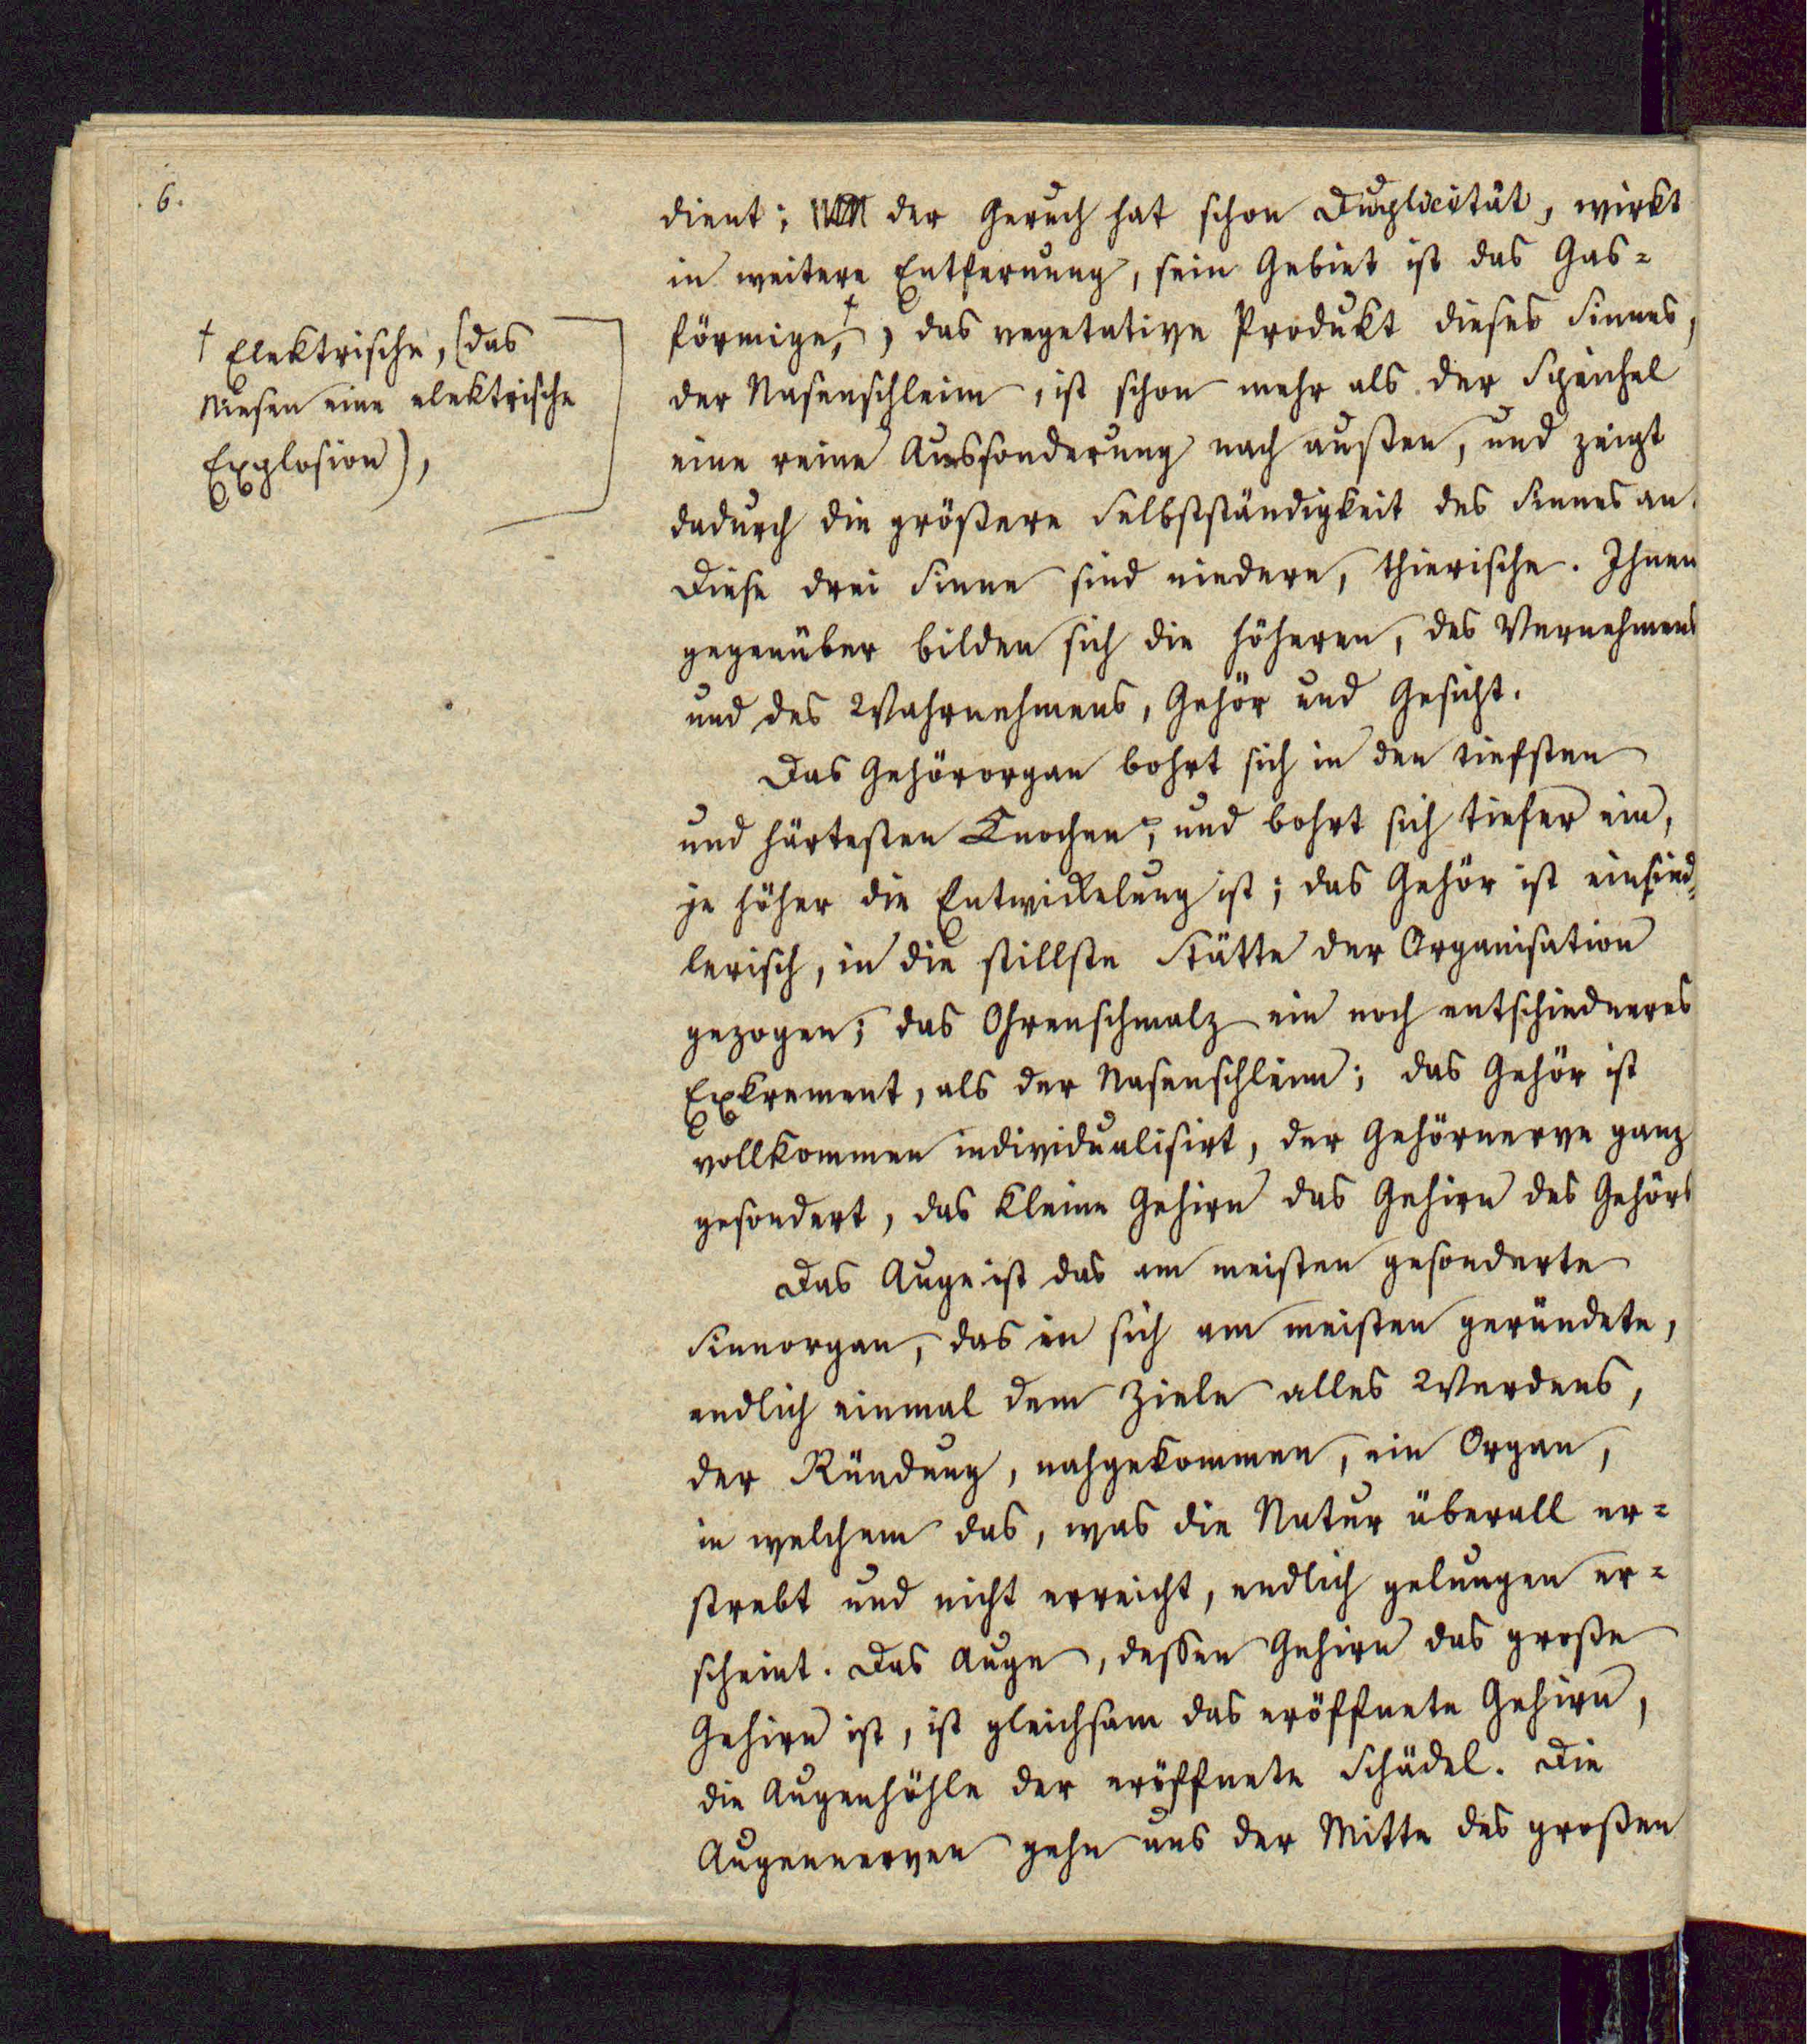 6.
dient; der Geruch hat schon Duplicität, wirkt
in weitere Entfernung, sein Gebiet ist das Gas-
förmige,† , das vegetative Produkt dieses Sinnes,
der Nasenschleim, ist schon mehr als der Speichel
eine reine Aussonderung nach außen, und zeigt
dadurch die größere Selbstständigkeit des Sinnes an.
Diese drei Sinne sind niedere, thierische. Ihnen
gegenüber bilden sich die höheren, des Vernehmens
und des Wahrnehmens, Gehör und Gesicht.
Das Gehörorgan bohrt sich in den tiefsten
und härtesten Knochen, und bohrt sich tiefer ein,
je höher die Entwickelung ist; das Gehör ist einsied-
lerisch, in die stillste Stätte der Organisation
gezogen; das Ohrenschmalz ein noch entschiedneres
Exkrement, als der Nasenschleim; das Gehör ist
vollkommen individualisirt, der Gehörnerve ganz
gesondert, das kleine Gehirn das Gehirn des Gehörs
Das Auge ist das am meisten gesonderte
Sinnorgan, das in sich am meisten geründete,
endlich einmal dem Ziele alles Werdens,
der Ründung, nahgekommen, ein Organ,
in welchem das, was die Natur überall er-
strebt und nicht erreicht, endlich gelungen er-
scheint. Das Auge, dessen Gehirn das große
Gehirn ist, ist gleichsam das eröffnete Gehirn,
die Augenhöhle der eröffnete Schädel. Die
Augennerven gehn aus der Mitte des großen
† Elektrische, (das
Niesen eine elektrische
Explosion),